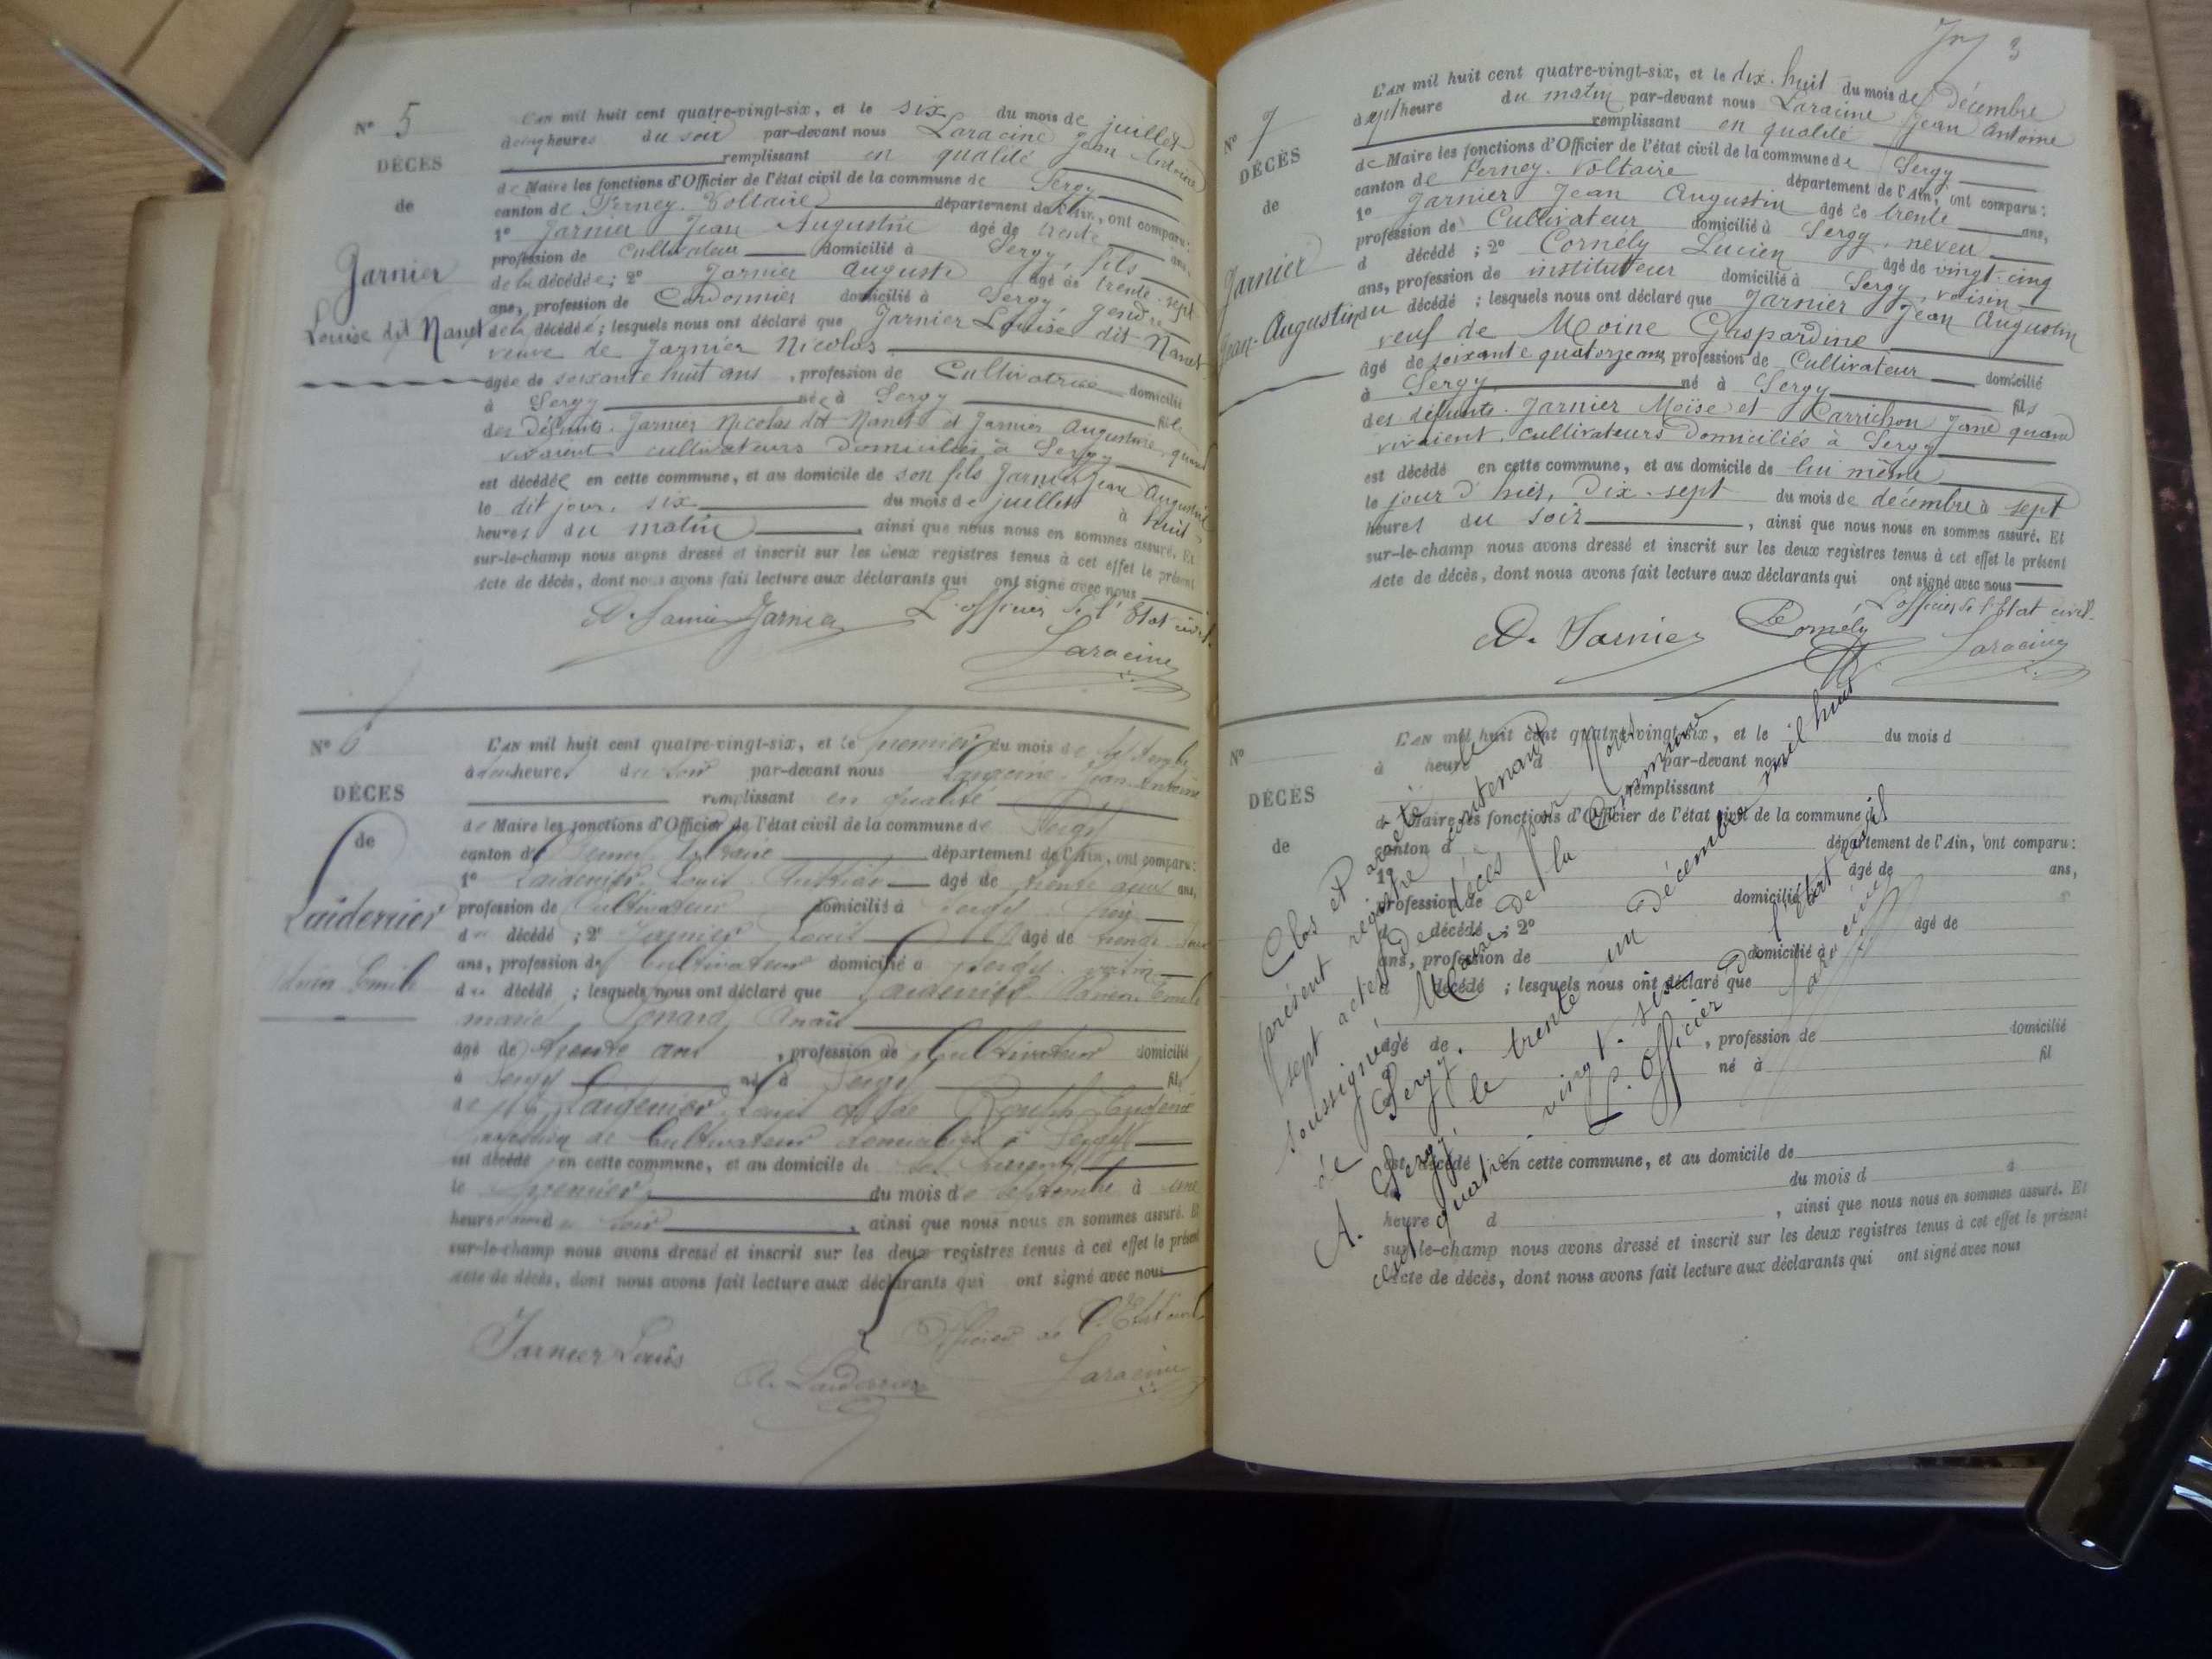 N° 5
DÉCÈS
de
Jarnier
Louise dit Nanet
L'AN mil huit cent quatre-vingt-six, et le six du mois de juillet
à cinq heures du soir par-devant nous Laracine Jean Antoine
remplissant en qualité
de Maire les fonctions d'Officier de l'état civil de la commune de Sergy
canton de Ferney-Voltaire département de l'Ain, ont comparu :
1° Jarnier Jean Augustin âgé de trente ans,
profession de cultivateur domicilié à Sergy, fils
de la décédée ; 2° Jarnier Auguste âgé de trente-sept
ans, profession de Cordonnier domicilié à Sergy, gendre
de la décédée ; lesquels nous ont déclaré que Jarnier Louise dit Nanet
veuve de Jarnier Nicolas
âgée de soixante huit ans, profession de Cultivatrice domicilié
à Sergy née à Sergy fille
des défunts Jarnier Nicolas dit Nanet et Jarnier Augustine, quand
vivaient cultivateurs domiciliés à Sergy
est décédée en cette commune, et au domicile de son fils Jarnier Jean Augustin
le dit jour, six du mois de juillet à huit
heures du matin, ainsi que nous nous en sommes assuré. Et
sur-le-champ nous avons dressé et inscrit sur les deux registres tenus à cet effet le présent
Acte de décès, dont nous avons fait lecture aux déclarants qui ont signé avec nous
Jarnier L'officier de l'État civil.
Laracine
N° 6
DÉCÈS
de
Laidernier
Emile
L'AN mil huit cent quatre-vingt-six, et le premier du mois de septembre
à heures du soir par-devant nous Laracine Jean Antoine
remplissant en qualité
de Maire les fonctions d'Officier de l'état civil de la commune de Sergy
canton de Ferney-Voltaire département de l'Ain, ont comparu :
1° Laidernier Louis âgé de trente ans,
profession de Cultivateur domicilié à Sergy
du décédé ; 2° Jarnier Louis âgé de trente
ans, profession de Cultivateur domicilié à Sergy voisin
du décédé ; lesquels nous ont déclaré que Laidernier Emile
marié
âgé de trente ans, profession de Cultivateur domicilié
à Sergy né à Sergy fils
de Laidernier Louis et de
profession de Cultivateur domiciliés à Sergy
est décédé en cette commune, et au domicile de
le premier du mois de septembre à une
heure du soir, ainsi que nous nous en sommes assuré. Et
sur-le-champ nous avons dressé et inscrit sur les deux registres tenus à cet effet le présent
Acte de décès, dont nous avons fait lecture aux déclarants qui ont signé avec nous
Officier de l'État civil
Jarnier Louis
Laracine
3
N° 7
DÉCÈS
de
Jarnier
Jean-Augustin
L'AN mil huit cent quatre-vingt-six, et le dix-huit du mois de Décembre
à sept heure du matin par-devant nous Laracine Jean Antoine
remplissant en qualité
de Maire les fonctions d'Officier de l'état civil de la commune de Sergy
canton de Ferney-Voltaire département de l'Ain, ont comparu :
1° Jarnier Jean Augustin âgé de trente ans,
profession de Cultivateur domicilié à Sergy, neveu
d décédé ; 2° Cornély Lucien âgé de vingt-cinq
ans, profession de instituteur domicilié à Sergy, voisin
du décédé ; lesquels nous ont déclaré que Jarnier Jean Augustin
veuf de Moine Gaspardine
âgé de soixante quatorze ans, profession de Cultivateur domicilié
à Sergy né à Sergy fils
des défunts Jarnier Moïse et Carrichon Jane quand
vivaient cultivateurs domiciliés à Sergy
est décédé en cette commune, et au domicile de lui même
le jour d'hier, dix-sept du mois de décembre à sept
heures du soir, ainsi que nous nous en sommes assuré. Et
sur-le-champ nous avons dressé et inscrit sur les deux registres tenus à cet effet le présent
Acte de décès, dont nous avons fait lecture aux déclarants qui ont signé avec nous
L'officier de l'État civil.
A. Jarnier Cornély Laracine
N°
DÉCÈS
de
L'AN mil huit cent quatre-vingt-six, et le du mois d
à heure d par-devant nous
remplissant
d Maire les fonctions d'Officier de l'état civil de la commune d
canton d département de l'Ain, ont comparu :
1° âgé de ans,
profession de domicilié à
d décédé ; 2° âgé de
ans, profession de domicilié à
d décédé ; lesquels nous ont déclaré que
âgé de , profession de domicilié
à né à fil
est décédé en cette commune, et au domicile de
le du mois d à
heure d , ainsi que nous nous en sommes assuré. Et
sur-le-champ nous avons dressé et inscrit sur les deux registres tenus à cet effet le présent
Acte de décès, dont nous avons fait lecture aux déclarants qui ont signé avec nous
Clos et arrêté le
présent registre contenant
sept actes de décès par Nous
soussigné Maire de la Commune
de Sergy.
A Sergy, le trente un décembre mil huit
cent quatre-vingt-six
L'Officier de l'état civil
Laracine